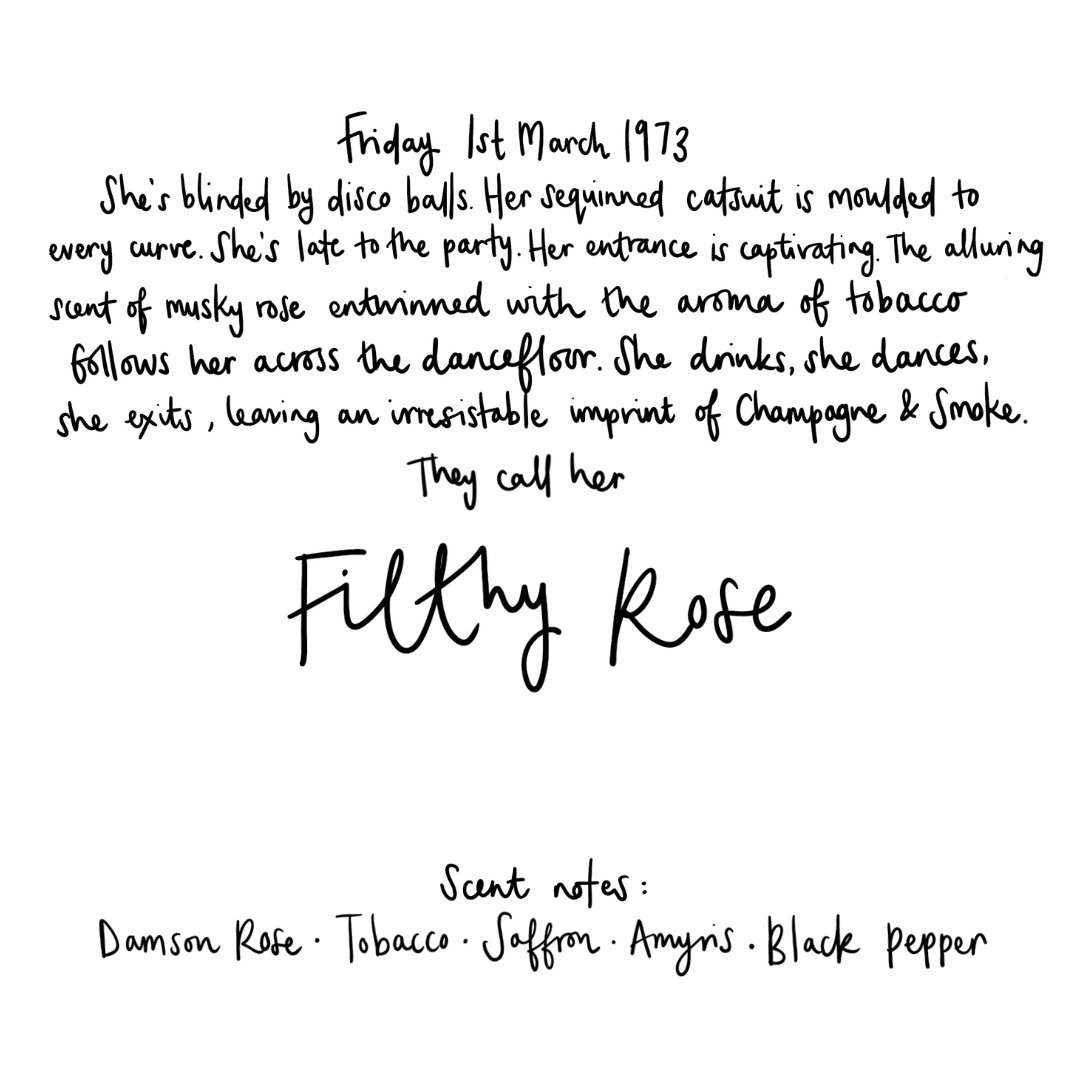 Friday 1st March 1973
She's blinded by disco balls. Her sequinned catsuit is moulded to
every curve. She's late to the party. Her entrance is captivating. The alluring
scent of musky rose entwinned with the aroma of tobacco
follows her across the dancefloor. She drinks, she dances,
she exits, leaving an irresistable imprint of Champagne & Smoke.
They call her
Filthy Rose
Scent notes:
Damson Rose · Tobacco · Saffron · Amyris · Black Pepper